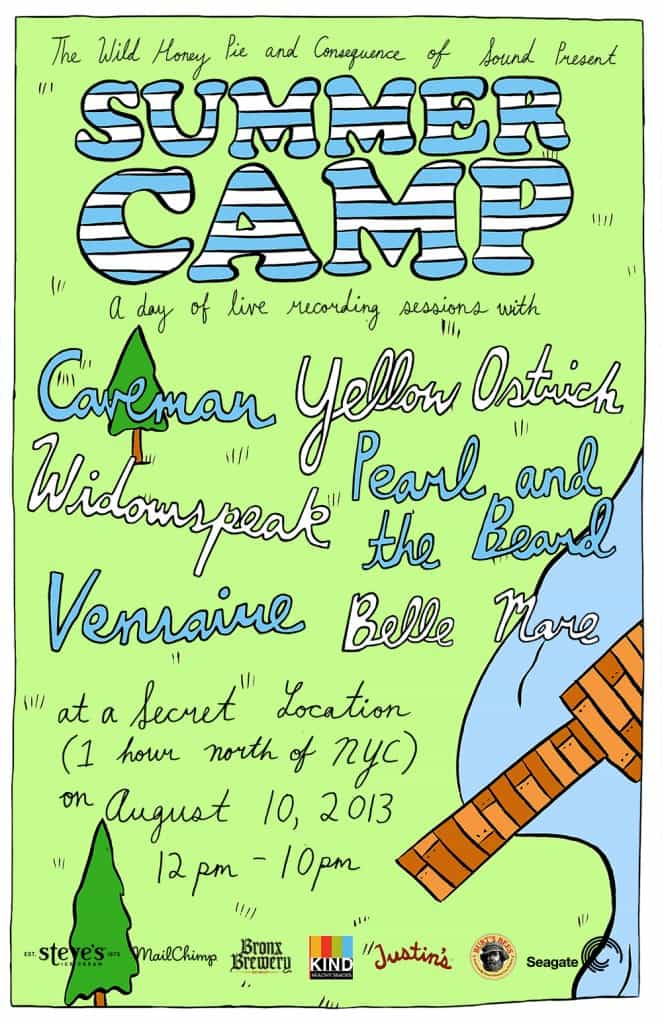 The Wild Honey Pie and Consequence of Sound Present
SUMMER
CAMP
A day of live recording sessions with
Caveman Yellow Ostrich
Widowspeak Pearl and
the Beard
Vensaire Belle Mare
at a Secret Location
(1 hour north of NYC)
on August 10, 2013
12 pm - 10pm
EST. steve's 1973
ICE CREAM
MailChimp
Bronx
Brewery
KIND
HEALTHY SNACKS
Justin's
BURT'S BEES
Seagate